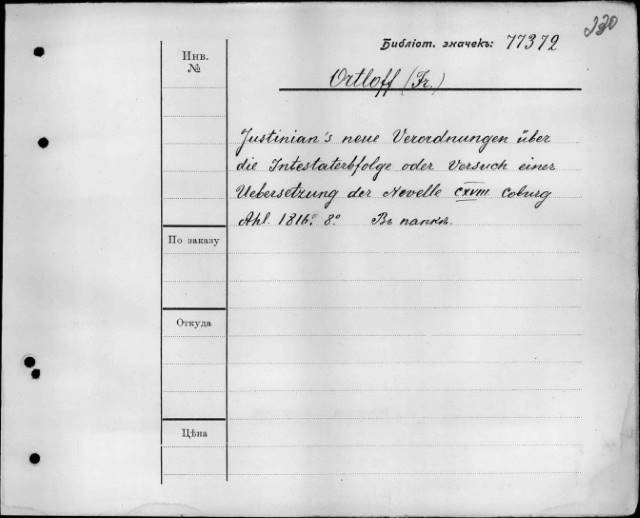 330
Библіот. значекъ: 77372
Инв.
№
Ortloff (Fr.)
Justinian's neue Verordnungen über
die Intestaterbfolge oder Versuch einer
Uebersetzung der Novelle CXVIII Coburg
Ahl. 1816. 8° Въ папкѣ.
По заказу
Откуда
Цѣна